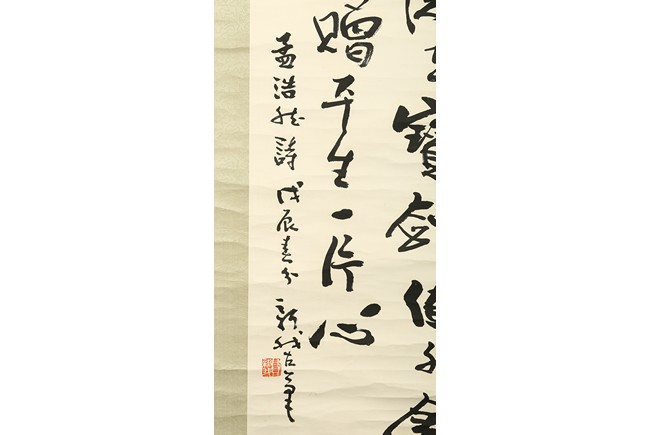 寶劍值千金
贈平生一片心
孟浩然詩 戊辰春分 新我左筆